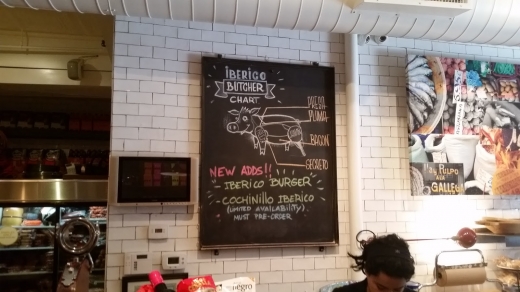 IBERICO
BUTCHER
CHART
PRESA
PLUMA
BACON
SECRETO
NEW ADDS!!
IBERICO BURGER
COCHINILLO IBERICO
(LIMITED AVAILABILITY)
MUST PRE-ORDER
PULPO
GALLEGO